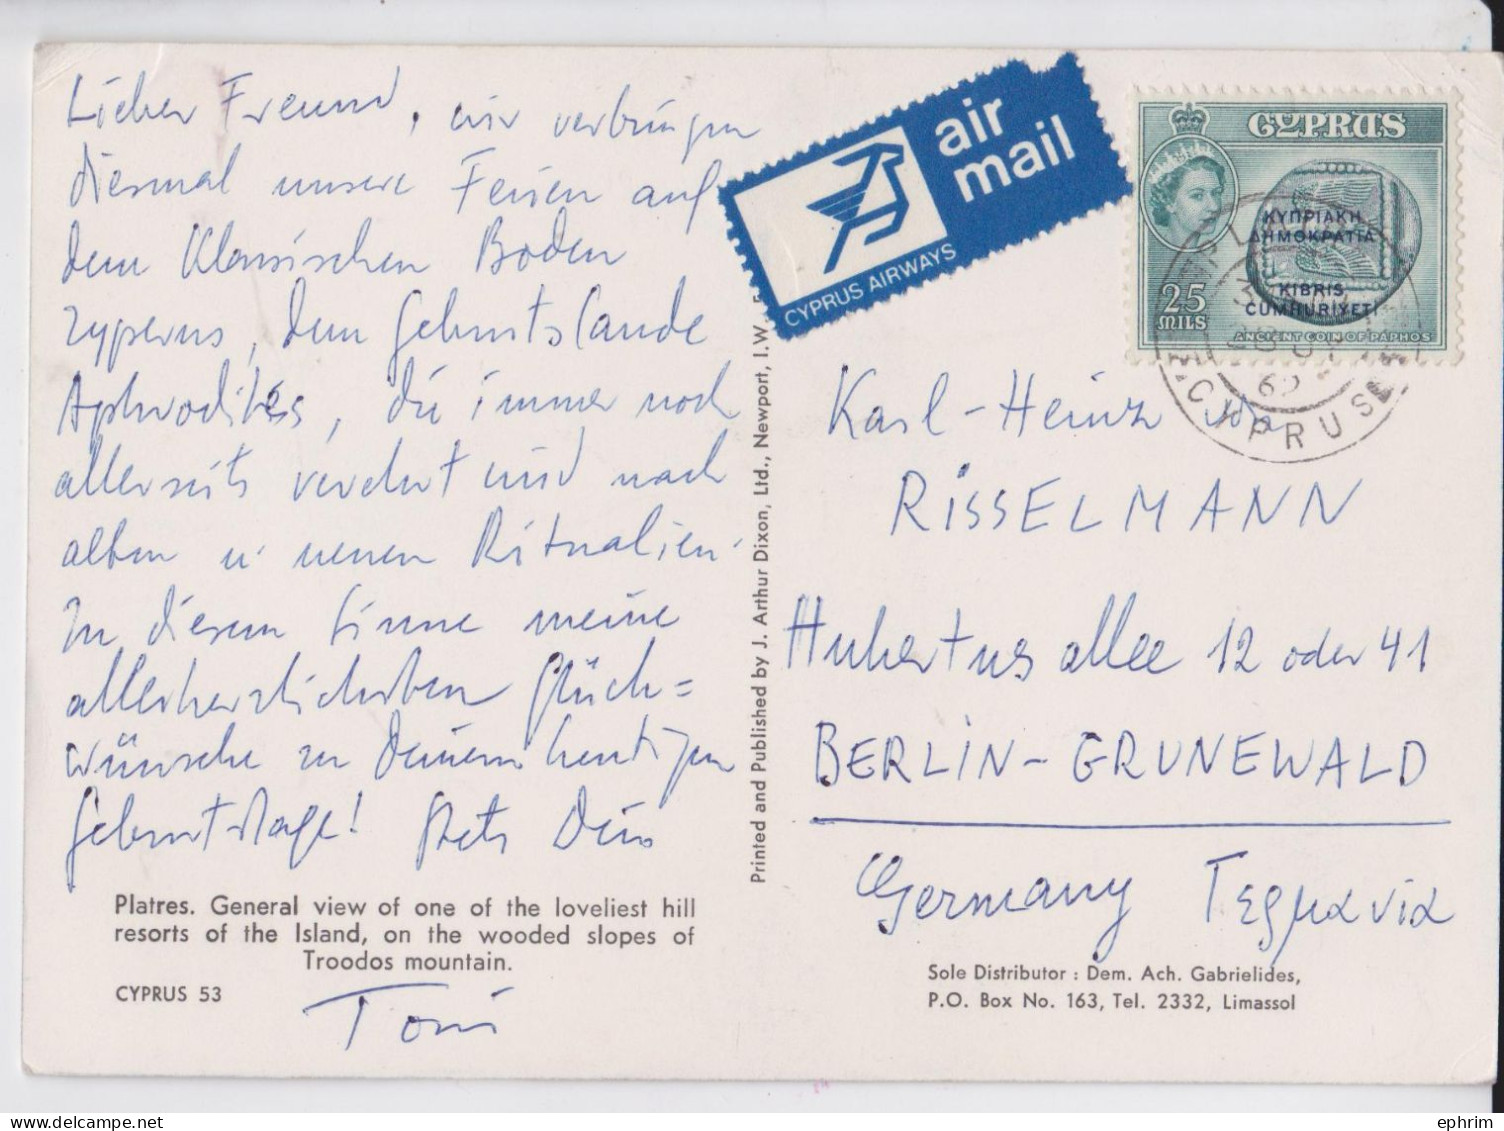 Lieber Freund, wir verbringen
diesmal unsere Ferien auf
dem klassischen Boden
Zyperns, dem Geburtslande
Aphrodites, die immer noch
allerseits verehrt wird nach
alten u. neuen Ritualien.
In diesem Sinne meine
allerherzlichsten Glück=
wünsche zu Deinem heutigen
Geburtstage! Stets Dein
Toni
Platres. General view of one of the loveliest hill
resorts of the Island, on the wooded slopes of
Troodos mountain.
CYPRUS 53
Printed and Published by J. Arthur Dixon, Ltd., Newport, I.W.
air
mail
CYPRUS AIRWAYS
CYPRUS
ΚΥΠΡΙΑΚΗ
ΔΗΜΟΚΡΑΤΙΑ
KIBRIS
CUMHURİYETİ
25
MILS
ANCIENT COIN OF PAPHOS
CYPRUS
Karl-Heinz von
RISSELMANN
Hubertusallee 12 oder 41
BERLIN-GRUNEWALD
Germany Γερμανία
Sole Distributor : Dem. Ach. Gabrielides,
P.O. Box No. 163, Tel. 2332, Limassol
ephrim